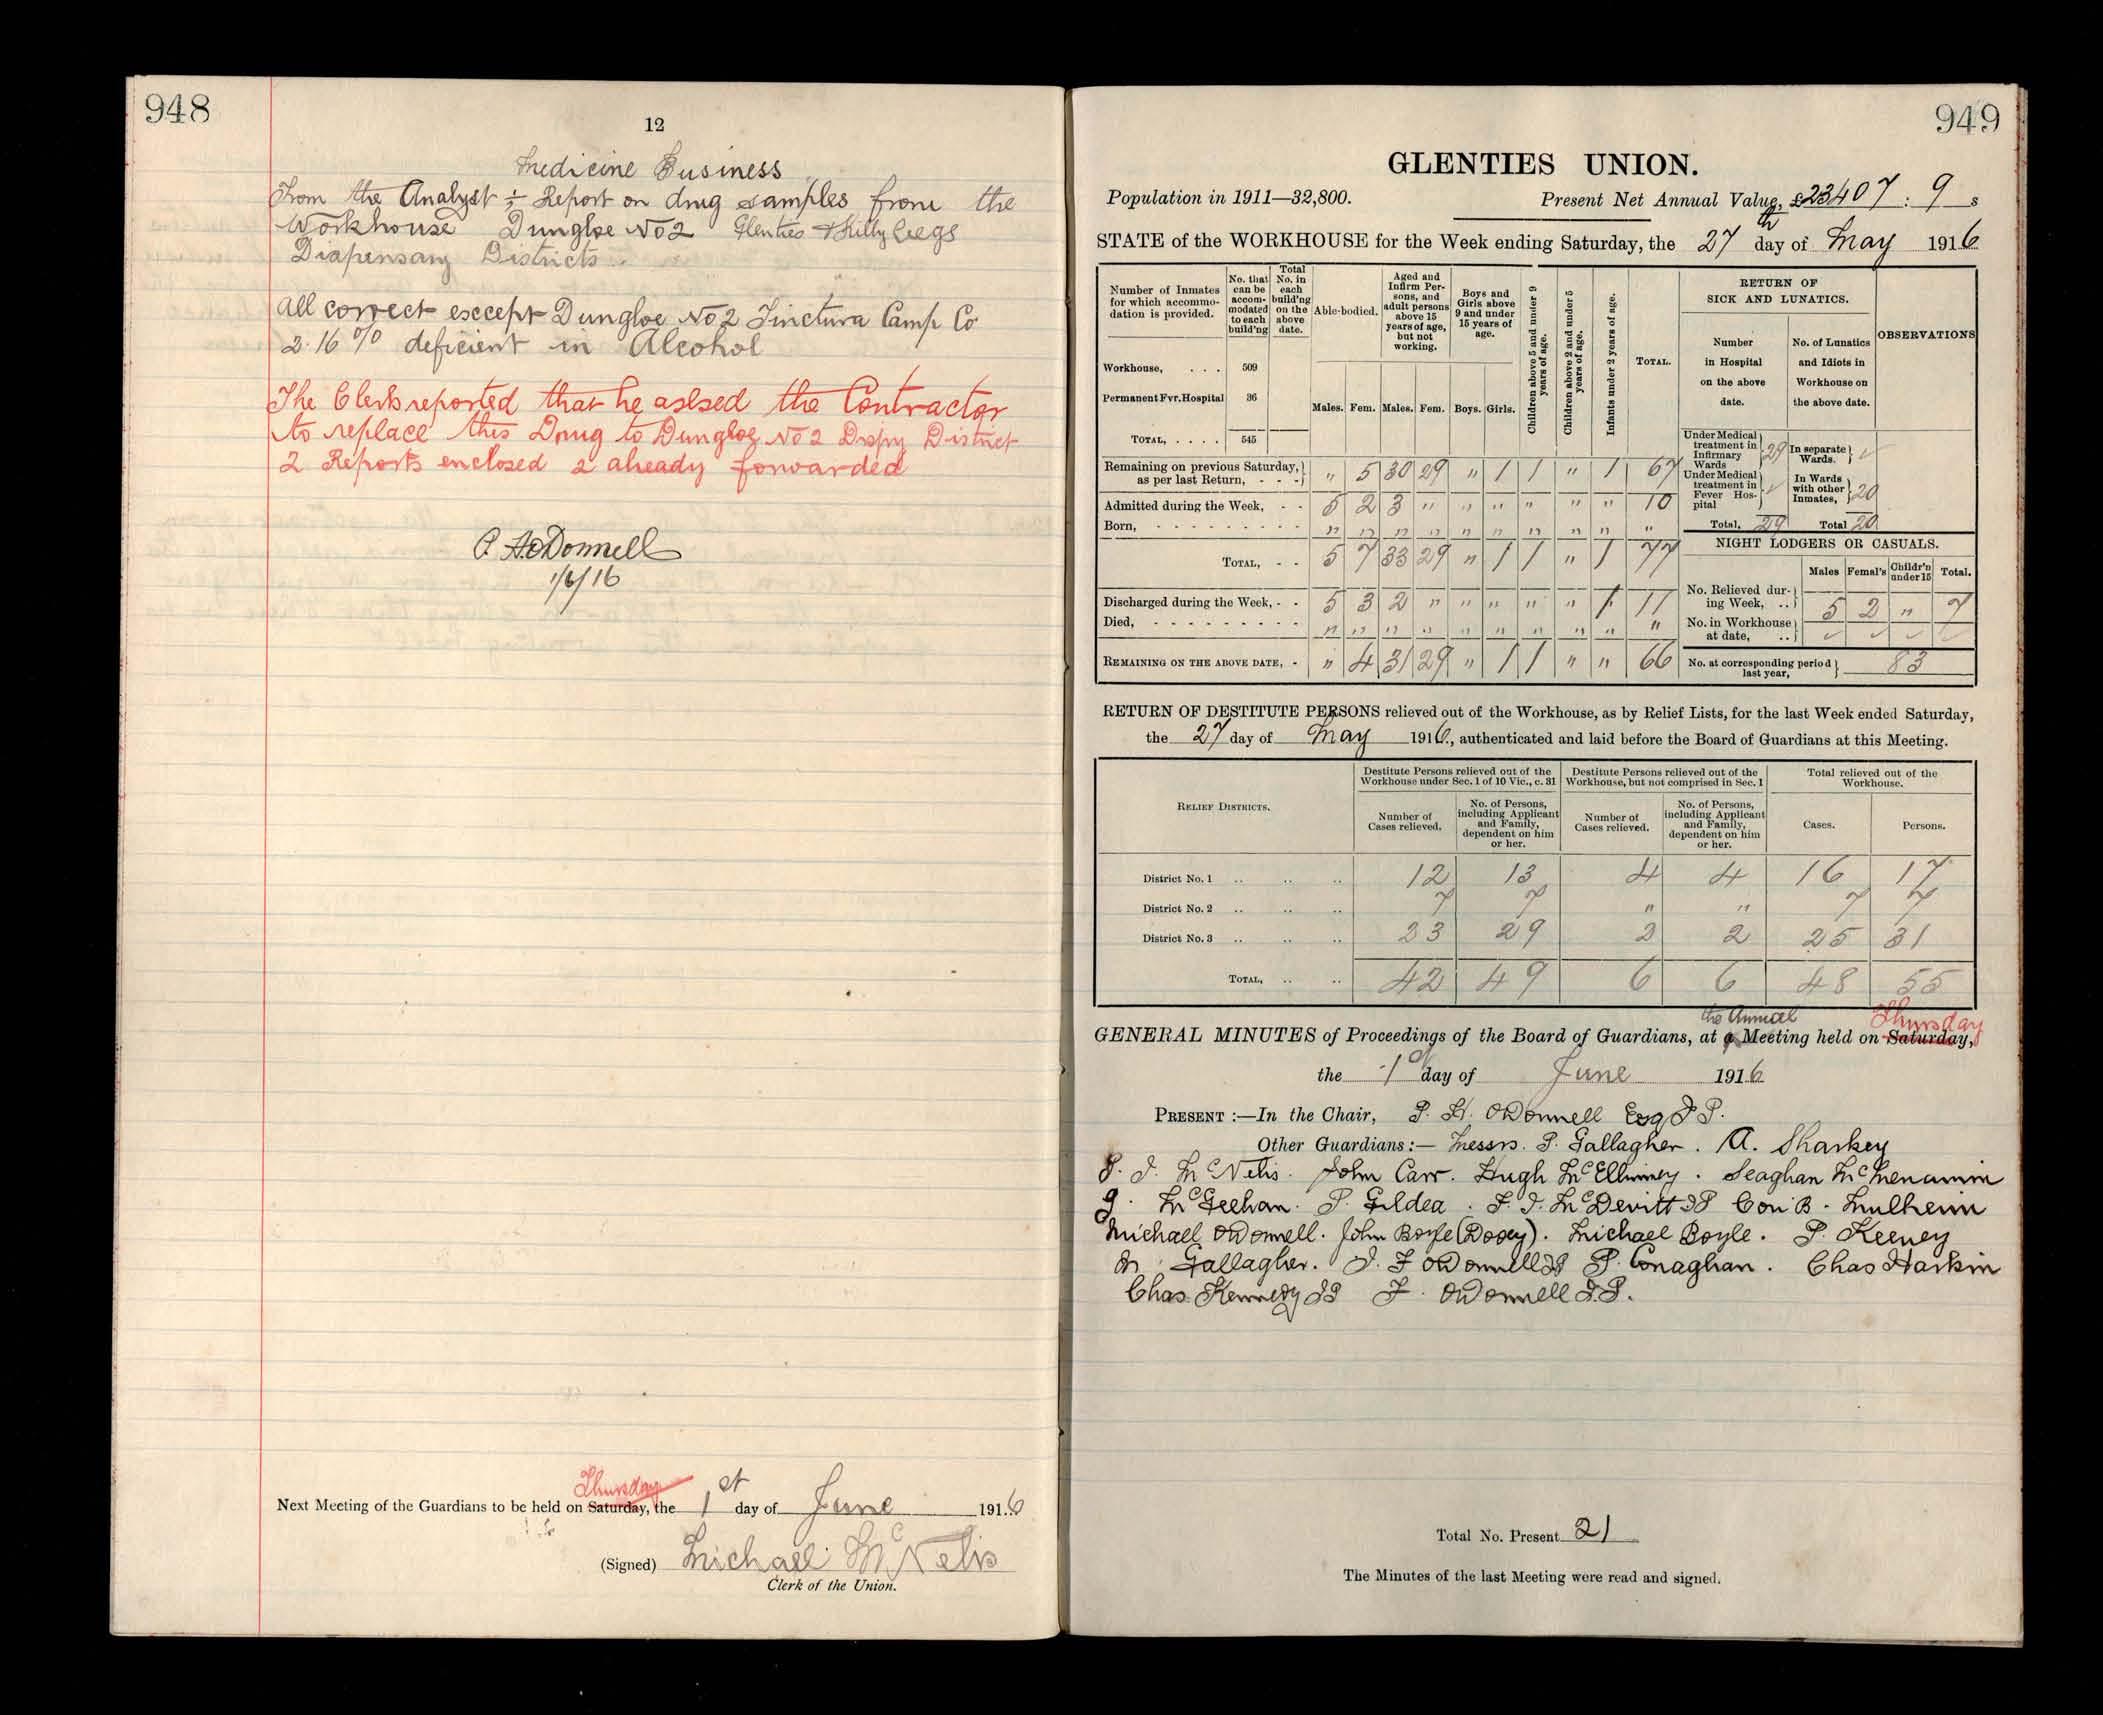 948
12
Medicine Business
From the Analyst ÷ Report on drug samples from the
Workhouse Dungloe No 2 Glenties & Killybegs
Dispensary Districts
All correct except Dungloe No 2 Tinctura Camp Co
2.16 % deficient in Alcohol
The Clerk reported that he asked the Contractor
to replace this Drug to Dungloe No 2 Dispy District
2 Reports enclosed 2 already forwarded
P. H. O'Donnell
1/6/16
Thursday
Next Meeting of the Guardians to be held on Saturday, the 1st day of June 1916
(Signed) Michael McNelis
Clerk of the Union.
949
GLENTIES UNION.
Population in 1911—32,800. Present Net Annual Value, £23407 : 9 s
STATE of the WORKHOUSE for the Week ending Saturday, the 27th day of May 1916
Number of Inmates for which accommodation is provided. No. that can be accommodated to each build'ng Total No. in each build'ng on the above date. Able-bodied. Aged and Infirm Persons, and adult persons above 15 years of age, but not working. Boys and Girls above 9 and under 15 years of age. Children above 5 and under 9 years of age. Children above 2 and under 5 years of age. Infants under 2 years of age. TOTAL. RETURN OF SICK AND LUNATICS. OBSERVATIONS
Number in Hospital on the above date. No. of Lunatics and Idiots in Workhouse on the above date.
Workhouse, . . . 509
Permanent Fvr. Hospital 36
Males. Fem. Males. Fem. Boys. Girls.
TOTAL, . . . . 545
Under Medical treatment in Infirmary Wards 29 In separate Wards. ✓
Under Medical treatment in Fever Hospital ✓ In Wards with other Inmates, 20
Total, 29 Total 20
Remaining on previous Saturday, as per last Return, - - - " 5 30 29 " 1 1 " 1 67
Admitted during the Week, - - 5 2 3 " " " " " " 10
Born, - - - - - - - - - " " " " " " " " " "
TOTAL, - - 5 7 33 29 " 1 1 " 1 77
Discharged during the Week, - - 5 3 2 " " " " " 1 11
Died, - - - - - - - - - " " " " " " " " " "
REMAINING ON THE ABOVE DATE, - " 4 31 29 " 1 1 " " 66
NIGHT LODGERS OR CASUALS.
Males Femal's Childr'n under 15 Total.
No. Relieved during Week, .. 5 2 " 7
No. in Workhouse at date, .. ✓ ✓ ✓ ✓
No. at corresponding period last year, 83
RETURN OF DESTITUTE PERSONS relieved out of the Workhouse, as by Relief Lists, for the last Week ended Saturday,
the 27 day of May 1916., authenticated and laid before the Board of Guardians at this Meeting.
RELIEF DISTRICTS. Destitute Persons relieved out of the Workhouse under Sec. 1 of 10 Vic., c. 31 Destitute Persons relieved out of the Workhouse, but not comprised in Sec. 1 Total relieved out of the Workhouse.
Number of Cases relieved. No. of Persons, including Applicant and Family, dependent on him or her. Number of Cases relieved. No. of Persons, including Applicant and Family, dependent on him or her. Cases. Persons.
District No. 1 .. .. .. 12 13 4 4 16 17
District No. 2 .. .. .. 7 7 " " 7 7
District No. 3 .. .. .. 23 29 2 2 25 31
TOTAL, .. .. 42 49 6 6 48 55
the Annual Thursday
GENERAL MINUTES of Proceedings of the Board of Guardians, at a Meeting held on Saturday,
the 1st day of June 1916
PRESENT :—In the Chair, P. H. O'Donnell Esq J P.
Other Guardians :— Messrs. P. Gallagher. A. Sharkey
P. J. McNelis. John Carr. Hugh McElhinney. Seaghan McMenamin
J. McGeehan. P. Gildea. F. J. McDevitt JP Con B. Mulhern
Michael O'Donnell. John Boyle (Dooey). Michael Boyle. P. Keeney
M Gallagher. J. F O'Donnell JP P. Conaghan. Chas Harkin
Chas Kennedy JP F. O'Donnell J.P.
Total No. Present 21
The Minutes of the last Meeting were read and signed.